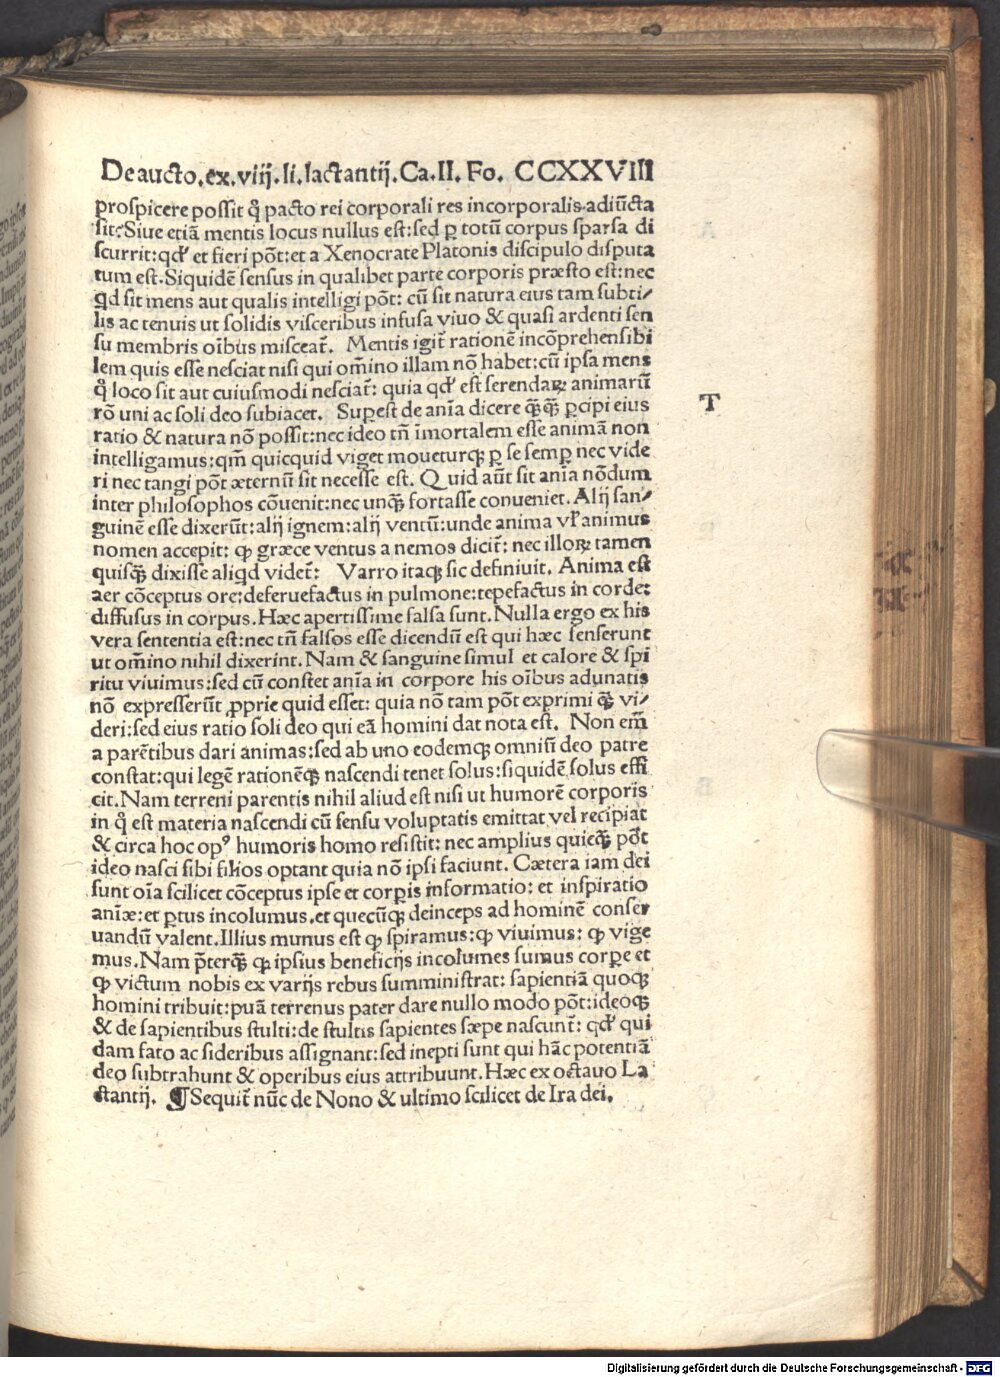 De aucto.ex.viij.li.lactantij.Ca.II. Fo. CCXXVIII
prospicere possit q̊ pacto rei corporali res incorporalis adiūcta
sit: Siue etiā mentis locus nullus est: sed ꝑ totū corpus sparsa di
scurrit: qd' et fieri pōt: et a Xenocrate Platonis discipulo disputa
tum est. Siquidē sensus in qualibet parte corporis præsto est: nec
qd sit mens aut qualis intelligi pōt: cū sit natura eius tam subti⸗
lis ac tenuis ut solidis visceribus infusa viuo & quasi ardenti sen
su membris oībus misceat᷑. Mentis igit᷑ rationē incōprehensibi
lem quis esse nesciat nisi qui om̄ino illam nō habet: cū ipsa mens
q̊ loco sit aut cuiusmodi nesciat᷑: quia qd' est serendaꝝ animarū
rō uni ac soli deo subiacet. Supest de aīa dicere q̄q̄ ꝑcipi eius
ratio & natura nō possit: nec ideo tn̄ īmortalem esse animā non
intelligamus: qm̄ quicquid viget moueturqꝫ ꝑ se semꝑ nec vide
ri nec tangi pōt æternū sit necesse est. Quid aūt sit aīa nōdum
inter philosophos cōuenit: nec unq̄ fortasse conueniet. Alij san⸗
guinē esse dixerūt: alij ignem: alij ventū: unde anima vl' animus
nomen accepit: ꝙ græce ventus anemos dicit᷑: nec illoꝝ tamen
quisq̄ dixisse aliqd videt᷑: Varro itaqꝫ sic definiuit. Anima est
aer cōceptus ore: deferuefactus in pulmone: tepefactus in corde:
diffusus in corpus. Hæc apertissime falsa sunt. Nulla ergo ex his
vera sententia est: nec tn̄ falsos esse dicendū est qui hæc senserunt
ut om̄ino nihil dixerint. Nam & sanguine simul et calore & spi
ritu viuimus: sed cū constet aīa in corpore his oībus adunatis
nō expresserūt ꝓprie quid esset: quia nō tam pōt exprimi q̄ vi⸗
deri: sed eius ratio soli deo qui eā homini dat nota est. Non em̄
a parētibus dari animas: sed ab uno eodemqꝫ omniū deo patre
constat: qui legē rationēqꝫ nascendi tenet solus: siquidē solus effi
cit. Nam terreni parentis nihil aliud est nisi ut humorē corporis
in q̊ est materia nascendi cū sensu voluptatis emittat vel recipiat
& circa hoc opꝰ humoris homo resistit: nec amplius quicq̄ pōt
ideo nasci sibi filios optant quia nō ipsi faciunt. Cætera iam dei
sunt oīa scilicet cōceptus ipse et corꝑis informatio: et inspiratio
anīæ: et ꝑtus incolumus. et quecūqꝫ deinceps ad hominē conser
uandū valent. Illius munus est ꝙ spiramus: ꝙ viuimus: ꝙ vige
mus. Nam p̄terq̄ ꝙ ipsius beneficijs incolumes sumus corꝑe et
ꝙ victum nobis ex varijs rebus sumministrat: sapientiā quoqꝫ
homini tribuit: puā terrenus pater dare nullo modo pōt: ideoqꝫ
& de sapientibus stulti: de stultis sapientes sæpe nascunt᷑: qd' qui
dam fato ac sideribus assignant: sed inepti sunt qui hāc potentiā
deo subtrahunt & operibus eius attribuunt. Hæc ex octauo La
ctantij. ¶ Sequit᷑ nūc de Nono & ultimo scilicet de Ira dei.
T
Digitalisierung gefördert durch die Deutsche Forschungsgemeinschaft - DFG